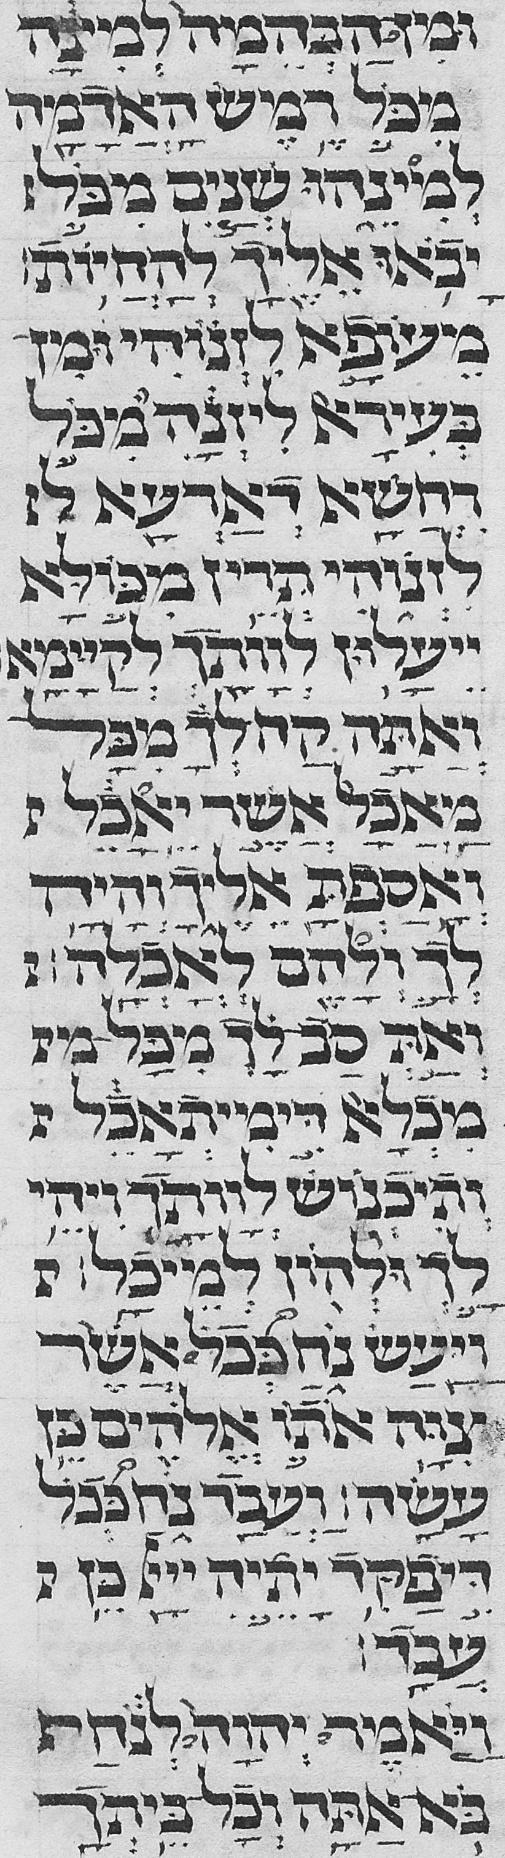 ומן הבהמה למינה
מכל רמש האדמה
למינהו שנים מכל
יבאו אליך להחיות׃
מעופא לזנוהי ומן
בעירא ליזנה מכל
רחשא דארעא ל
לזנוהי תרין מכולא
ייעלון לוותך לקיימא
ואתה קח לך מכל
מאכל אשר יאכל
ואספת אליך והיה
לך ולהם לאכלה׃
ואת סב לך מכל מ
מכלא דימיתאכל
ותיכנוש לוותך ויהי
לך ולהון למיכל׃
ויעש נח ככל אשר
צוה אתו אלהים כן
עשה׃ ועבד נח ככל
דיפקד יתיה ייי כן
עבד׃
ויאמר יהוה לנח
בא אתה וכל ביתך